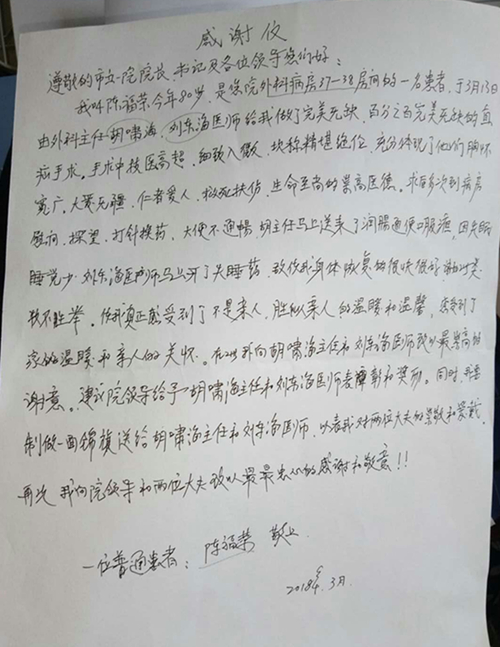 感谢仪
尊敬的市立一院院长、书记及各位领导您们好:
我叫陈福荣今年80岁,是您院外科病房37-38房间的一名患者,于3月13日
由外科主任胡啸海,刘东海医师给我做了完美无缺,百分之百完美无缺的直
疝手术。手术中技医高超,细致入微,堪称精堪绝伦,充分体现了他们胸怀
宽广、大爱无疆、仁者爱人、救死扶伤、生命至尚的崇高医德。术后多次到病房
慰问、探望、打针换药,大便不通畅,胡主任马上送来了润肠通便口服液,因失眠
睡觉少,刘东海医师马上开了失睡药,致使我身体恢复的很快很好,谢
枚不胜举。使我真正感受到了不是亲人,胜似亲人的温暖和温馨,感受到了
家的温暖和亲人的关怀。在此我向胡啸海主任和刘东海医师致以最崇高的
谢意。建议院领导给予胡啸海主任和刘东海医师表彰和奖励。同时,我要
制做一面锦旗送给胡啸海主任和刘东海医师,以表我对两位大夫的崇敬和爱戴。
再次我向院领导和两位大夫致以最最衷心的感谢和敬意!!
一位普通患者:陈福荣 敬上
2018年3月